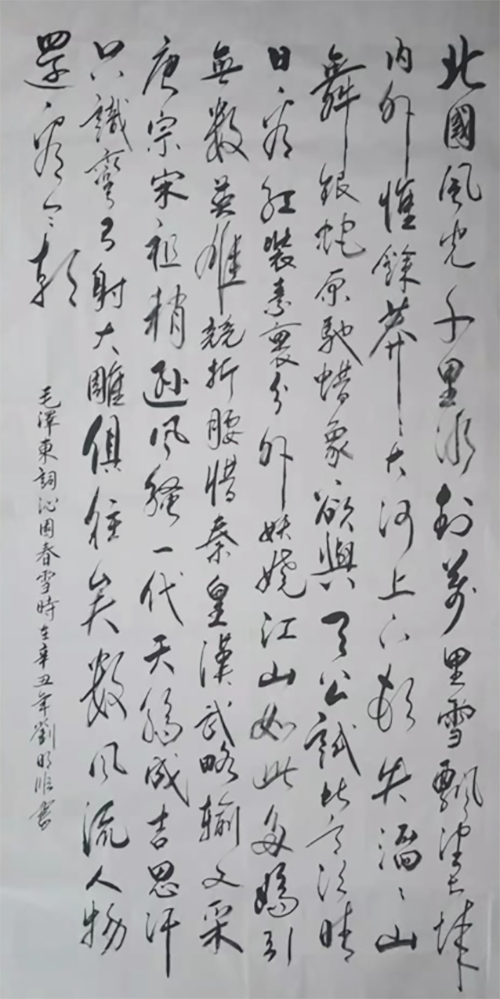 北國風光千里冰封萬里雪飄望長城
内外惟餘莽〻大河上下頓失滔〻山
舞銀蛇原馳蠟象欲與天公試比高須晴
日看紅裝素裹分外妖嬈江山如此多嬌引
無數英雄競折腰惜秦皇漢武略輸文采
唐宗宋祖稍遜風騷一代天驕成吉思汗
只識彎弓射大雕俱往矣數風流人物
還看今朝
毛澤東詞沁園春雪時在辛丑年劉明非書